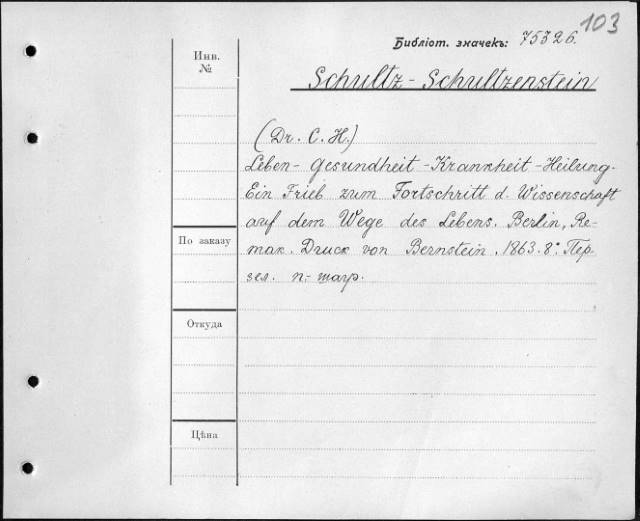 103
Библіот. значекъ: 75326.
Инв.
№
Schultz-Schultzenstein
(Dr. C. H.)
Leben-Gesundheit-Krankheit-Heilung.
Ein Frieb zum Fortschritt d. Wissenschaft
auf dem Wege des Lebens. Berlin, Re-
mak. Druck von Bernstein. 1863. 8°. Пер.
зел. п.-шагр.
По заказу
Откуда
Цѣна